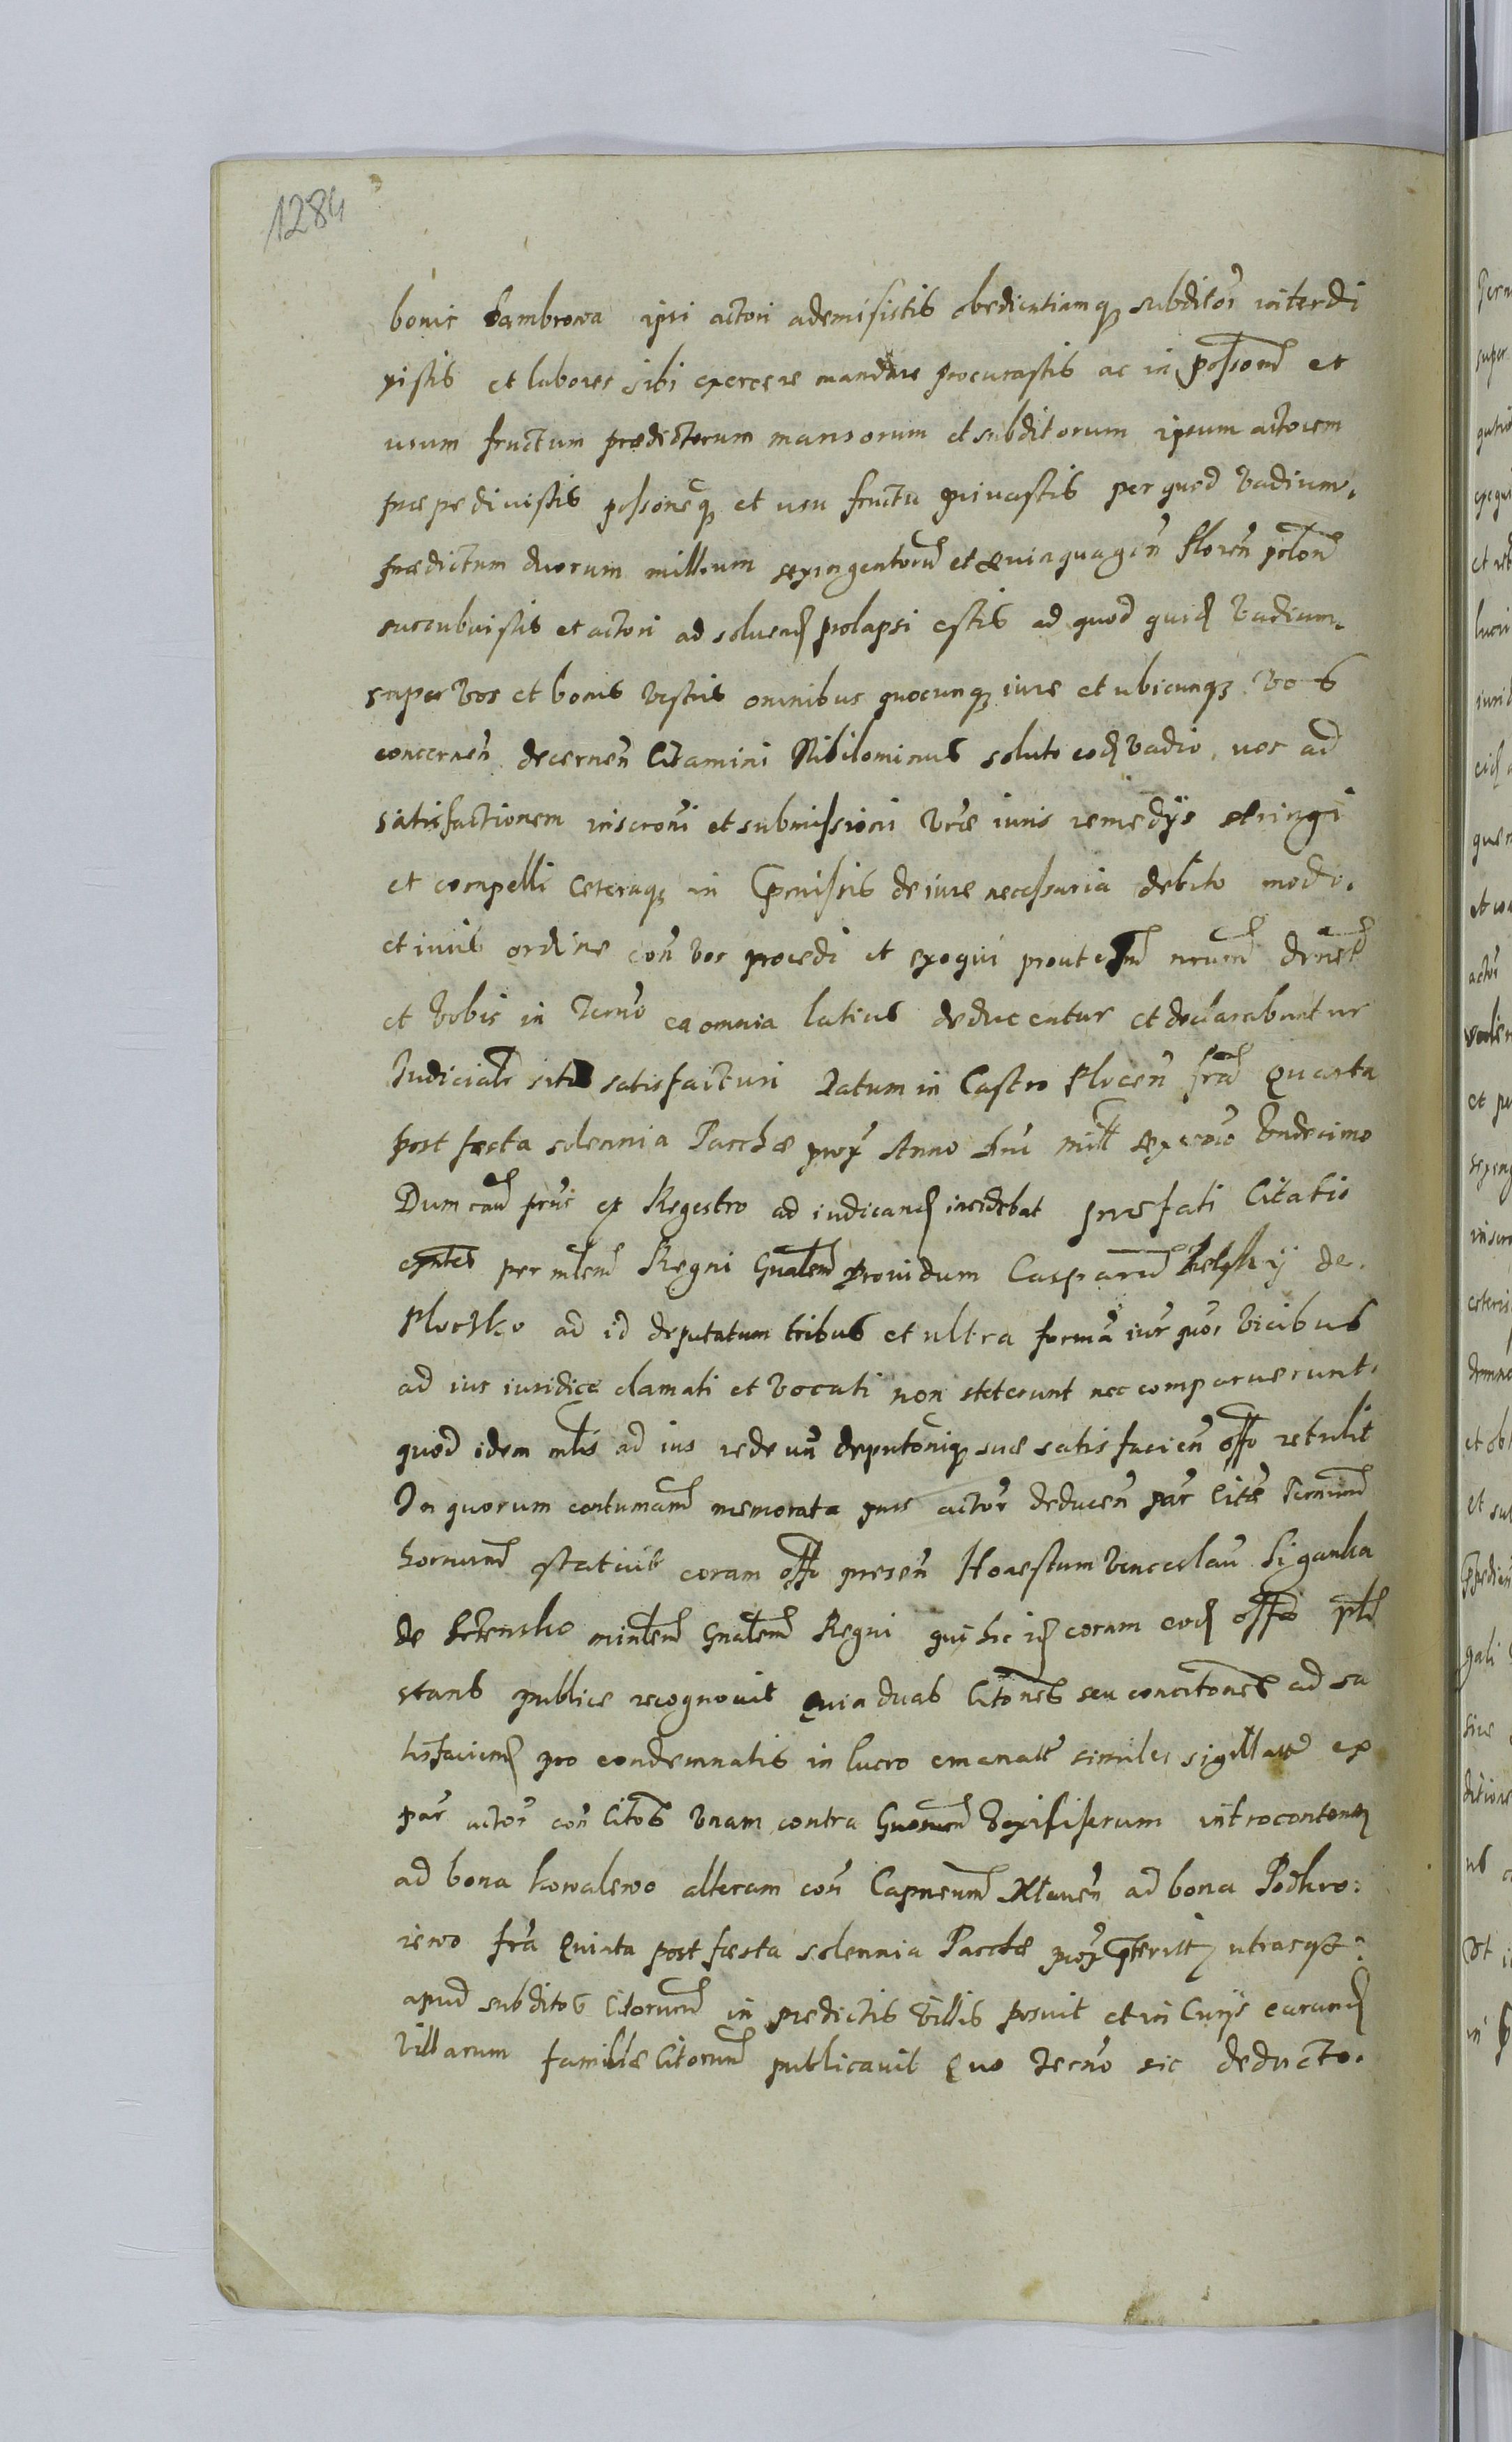 1284
bonis Dambrowa ipsi actori ademisistis obedientiamq subditor interdi
xistis et labores sibi exercere mandare procurastis ac in possom et
usum fructum prædictorum mansorum et subditorum ipsum actorem
præpedivistis possoneq et usu fructu privastis per quod vadium
prædictum duorum millium sexingentorum et quinquagen floren polon
succubuistis et actori ad solvend prolapsi estis ad quod quid vadium
super vos et bonis vestris omnibus quocunq iure et ubicunq vos
concernen decernen Citamini Nihilominus soluto eod vadio, vos ad
satisfactionem inscroni et submissioni vræ iuris remedijs stringi
et compelli ceteraq in præmissis de iure necessaria debito modo
et iuris ordine con vos procedi et exequi prout
et vobis in Termo ea omnia latius deducentur et declarabuntur
Judicialr sitis satisfacturi Datum in Castro Plocen fra Quarta
post festa solennia Paschæ prox Anno Dni mill sexcento Undecimo
Dum cau pns ex Regestro ad iudicand incidebat præfati Citatio
per mlem Regni Gnalem providum Casparum de
Ploczko ad id deputatum tribus et ultra forma iur quos vicibus
ad ius iuridice clamati et vocati non steterunt nec comparuerunt
quod idem mlis ad ius redeun deputoniq suæ satisfacien offo retulit
In quorum contumam memorata pars actor deducen par Citæ Terminum
hornum statuit coram offo presen Honestum Venceslau Siganka
de minlem Gnalem Regni qui hic id coram eod offo plr
stans publice recognovit Quia duas Citones seu concitones ad sa
tisfaciend pro condemnatis in lucro emanatt similes sigillatt ex
par actor con Citos Unam contra Gnosum Vexififerum introcontenₜ
ad bona Kowalewo alteram con Capneum ad bona Podkro:
iewo fra Quinta post festa solennia Paschæ prox pteritt utrasq:
apud subditos Citorum in predictis villis posuit et in Curijs earund
Villarum familiæ Citorum publicavit Quo Termo sic deducto.